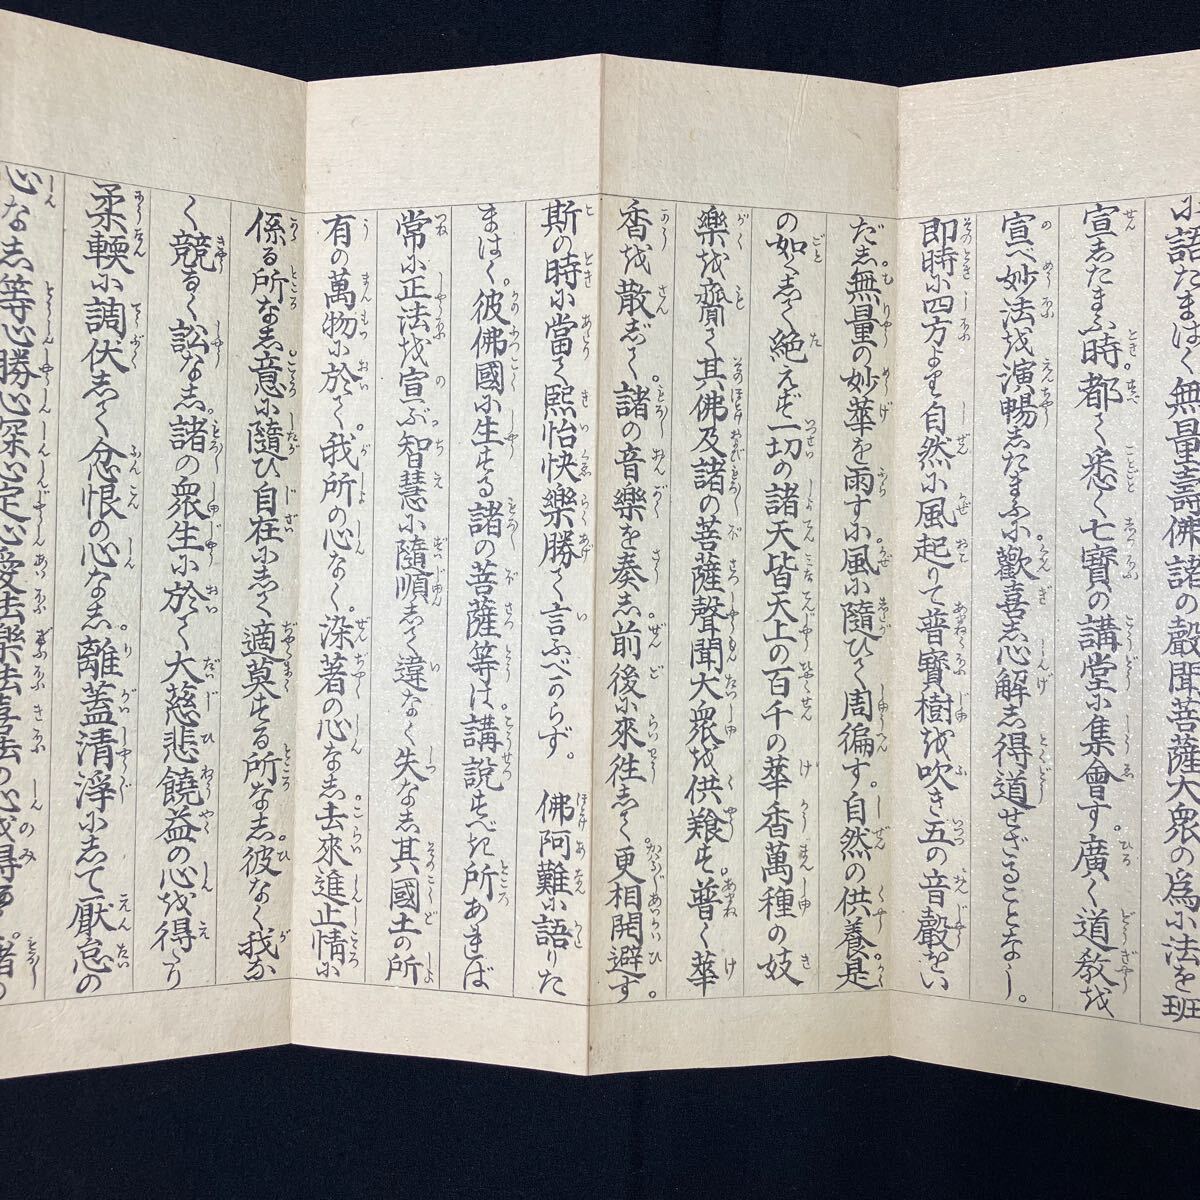 に語たまはく無量壽佛諸の聲聞菩薩大衆の為に法を班
宣したまふ時。都て悉く七寶の講堂に集會す。廣く道教を
宣べ妙法を演暢したまふに歡喜し心解し得道せざることなし。
即時に四方より自然に風起りて普寶樹を吹き五の音聲をい
だし無量の妙華を雨すに風に隨ひて周徧す。自然の供養是
の如くして絶えず一切の諸天皆天上の百千の華香萬種の妓
樂を齎て其佛及諸の菩薩聲聞大衆を供養す。普く華
香を散じて。諸の音樂を奏し前後に來往して更相開避す。
斯の時に當て熙怡快樂勝て言ふべからず。 佛阿難に語りた
まはく。彼佛國に生ずる諸の菩薩等は講説すべき所あれば
常に正法を宣ぶ智慧に隨順して違なく失なし其國土の所
有の萬物に於て我所の心なく。染著の心なし去來進止情に
係る所なし意に隨ひ自在にして適莫する所なし彼なく我な
く競なく訟なし。諸の衆生に於て大慈悲饒益の心を得たり
柔輭に調伏して忿恨の心なし。離蓋清浄にして厭怠の
心なし等心勝心深心定心愛法樂法喜法の心を得